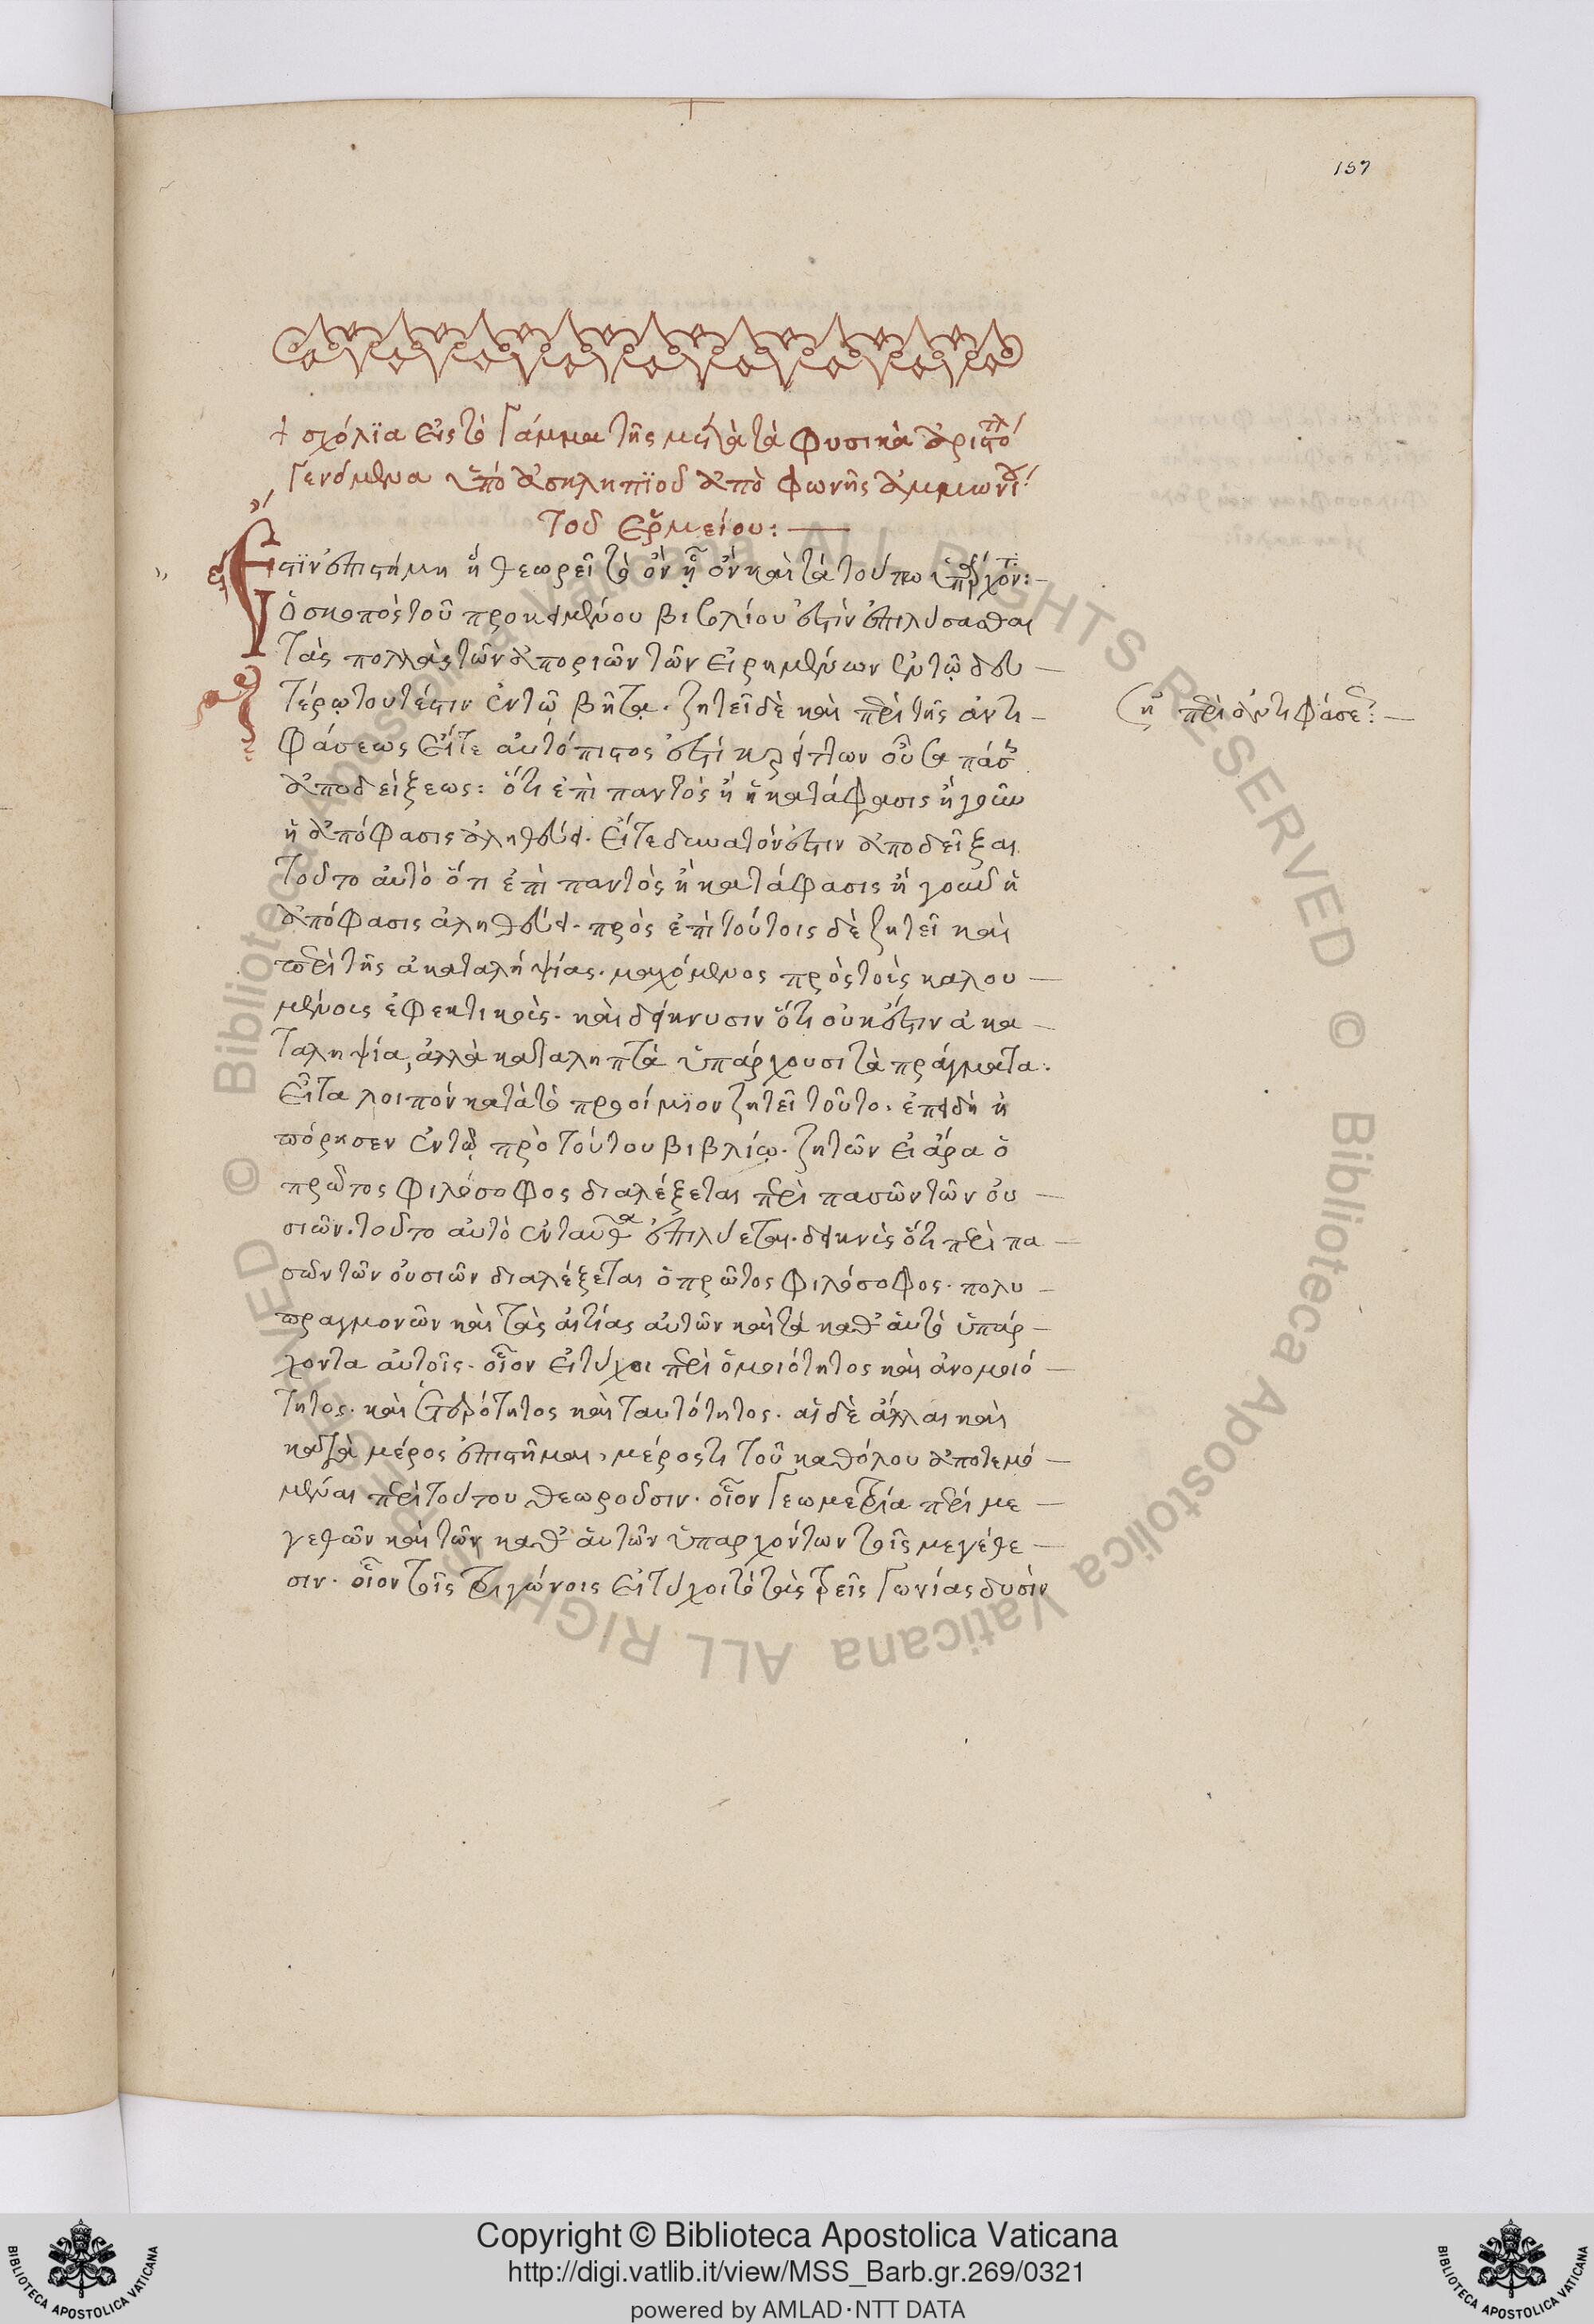 157
† σχόλϊα εἰς τὸ Γάμμα τῆς μετὰ τὰ φυσικὰ ἀριστο
Γενόμενα ὑπὸ ἀσκληπϊοῦ ἀπὸ φωνῆς ἀμμωνί
τοῦ ἑρμείου: —
Ἔστϊν ἐπιστήμη ἣ θεωρεῖ τὸ ὂν ᾗ ὂν καὶ τὰ τούτω ὑπάρχον: –
ὁ σκοπὸς τοῦ προκειμένου βιβλίου ἐστὶν ἐπιλύσασθαι
τὰς πολλὰς τῶν ἀποριῶν τῶν εἰρημένων ἐν τῷ δευ –
τέρῳ τουτέστιν ἐν τῷ βῆτα. ζητεῖ δὲ καὶ περὶ τῆς ἀντι –
ἡ περὶ ἀντιφάσε: –
φάσεως εἴτε αὐτόπιστος ἐστὶ κρείττων οὖσα πάσ
ἀποδείξεως: ὅτι ἐπὶ παντὸς ἢ ἡ κατάφασις ἢ γοῦν
ἡ ἀπόφασις ἀληθεύει. εἴτε δυνατόν ἐστιν ἀποδεῖξαι
τοῦτο αὐτὸ ὅτι ἐπὶ παντὸς ἢ κατάφασις ἢ γοῦν ἡ
ἀπόφασις ἀληθεύει. πρὸς ἐπὶ τούτοις δὲ ζητεῖ καὶ
περὶ τῆς ἀκαταληψίας. μαχόμενος πρὸς τοὺς καλου –
μένους ἐφεκτικοὺς. καὶ δείκνυσιν ὅτι οὐκ ἔστιν ἀκα –
ταληψία, ἀλλὰ καταληπτὰ ὑπάρχουσι τὰ πράγματα:
εἶτα λοιπὸν κατὰ τὸ προοίμϊον ζητεῖ τοῦτο. ἐπειδὴ ἠ
πόρησεν ἐν τῷ πρὸ τούτου βιβλίῳ. ζητῶν εἰ ἄρα ὁ
πρῶτος φιλόσοφος διαλέξεται περὶ πασῶν τῶν οὐ –
σιῶν. τοῦτο αὐτὸ ἐνταῦθα ἐπιλύεται. δεικνὺς ὅτι περὶ πα –
σῶν τῶν οὐσιῶν διαλέξεται ὁ πρῶτος φιλόσοφος. πολυ –
πραγμονῶν καὶ τὰς αἰτίας αὐτῶν καὶ τὰ καθ' αὑτὸ ὑπάρ –
χοντα αὐτοῖς. οἷον εἰ τύχοι περὶ ὁμοιότητος καὶ ἀνομοιό –
τητος. καὶ ἑτερότητος καὶ ταυτότητος. αἱ δὲ ἄλλαι καὶ
κατὰ μέρος ἐπιστῆμαι, μέρος τι τοῦ καθόλου ἀποτεμό –
μεναι περὶ τούτου θεωροῦσιν. οἷον Γεωμετρία περὶ με –
γεθῶν καὶ τῶν καθ' αὑτῶν ὑπαρχόντων τοῖς μεγέθε –
σιν. οἷον τοῖς τριγώνοις εἰ τύχοι τὸ τὰς τρεῖς Γωνίας δυσὶν
Copyright © Biblioteca Apostolica Vaticana
http://digi.vatlib.it/view/MSS_Barb.gr.269/0321
powered by AMLAD·NTT DATA